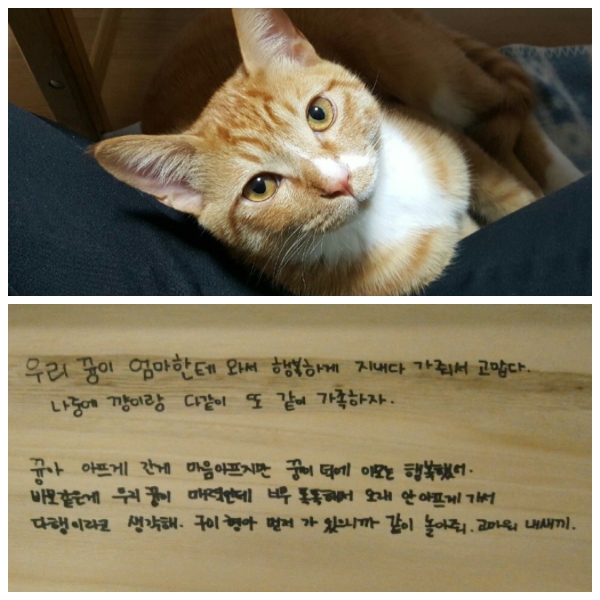 우리 꿍이 엄마한테 와서 행복하게 지내다 가줘서 고맙다.
나중에 깡이랑 다같이 또 같이 가족하자.
꿍아 아프게 간게 마음아프지만 꿍이 덕에 이모는 행복했어.
바보같은게 우리 꿍이 매력인데 너무 똑똑해서 오래 안아프게 가서
다행이라고 생각해. 구이 형아 먼저 가 있으니까 같이 놀아줘. 고마워 내새끼.